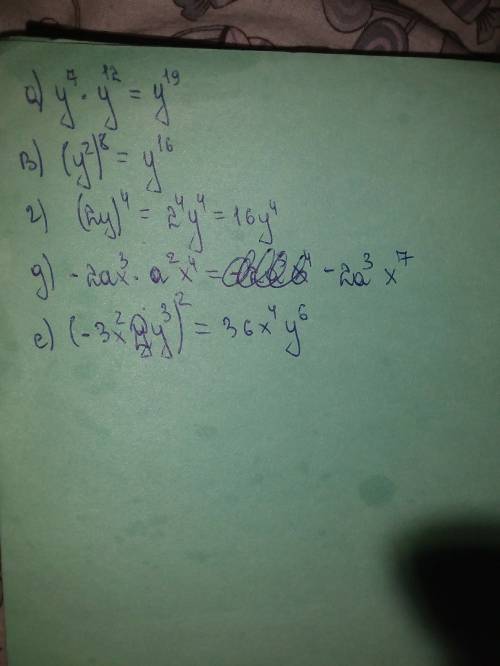 а) y⁷ · y¹² = y¹⁹
в) (y²)⁸ = y¹⁶
г) (2y)⁴ = 2⁴y⁴ = 16y⁴
д) -2ax³ · a²x⁴ = -2a³x⁷
е) (-3x² y³)² = 36x⁴y⁶